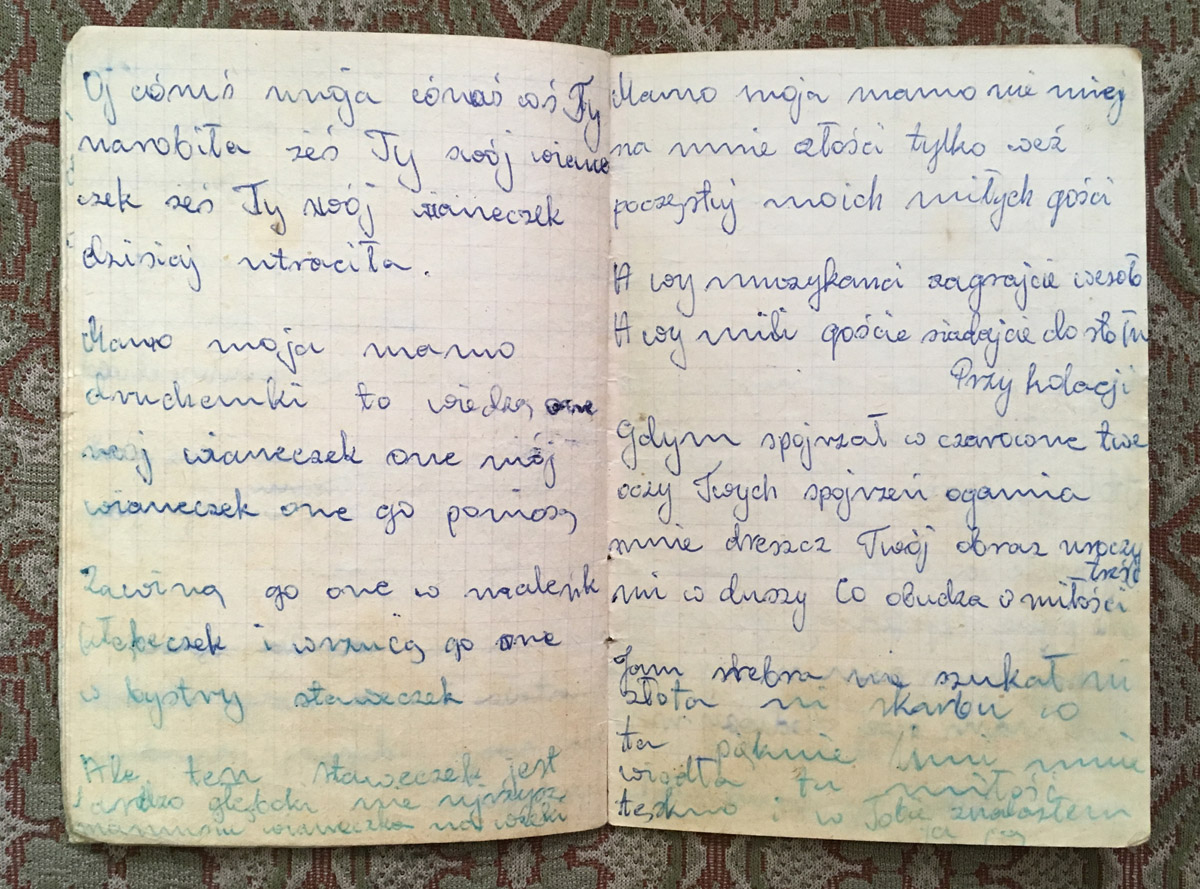 Oj córuś moja córuś coś Ty
narobiła żeś Ty swój wiane
czek żeś Ty swój wianeczek
dzisiaj utraciła.
Mamo moja mamo
drużbenki to wiedzą one
mój wianeczek one mój
wianeczek one go poniosą
Zawiną go one w maleńk
chłebeczek i wrzucą go one
w bystry staweczek
Ale ten staweczek jest
bardzo głęboki nie ujrzysz
mamusiu wianeczka na wieki
Mamo moja mamo nie miej
na mnie złości tylko weź
poczęstuj moich miłych gości
A wy muzykanci zagrajcie wesoło
A wy mili goście siadajcie do stołu
Przy kolacji
Gdym spojrzał w czarowne twe
oczy Twych spojrzeń ogarnia
mnie dreszcz Twój obraz uroczy
treść
mi w duszy Co obudza o miłości
Jam srebra nie szukał ni
złota ni skarbu co
ta pięknie lśni mnie
wiodła tu miłość
tęskno i w Tobie znalazłem
ją